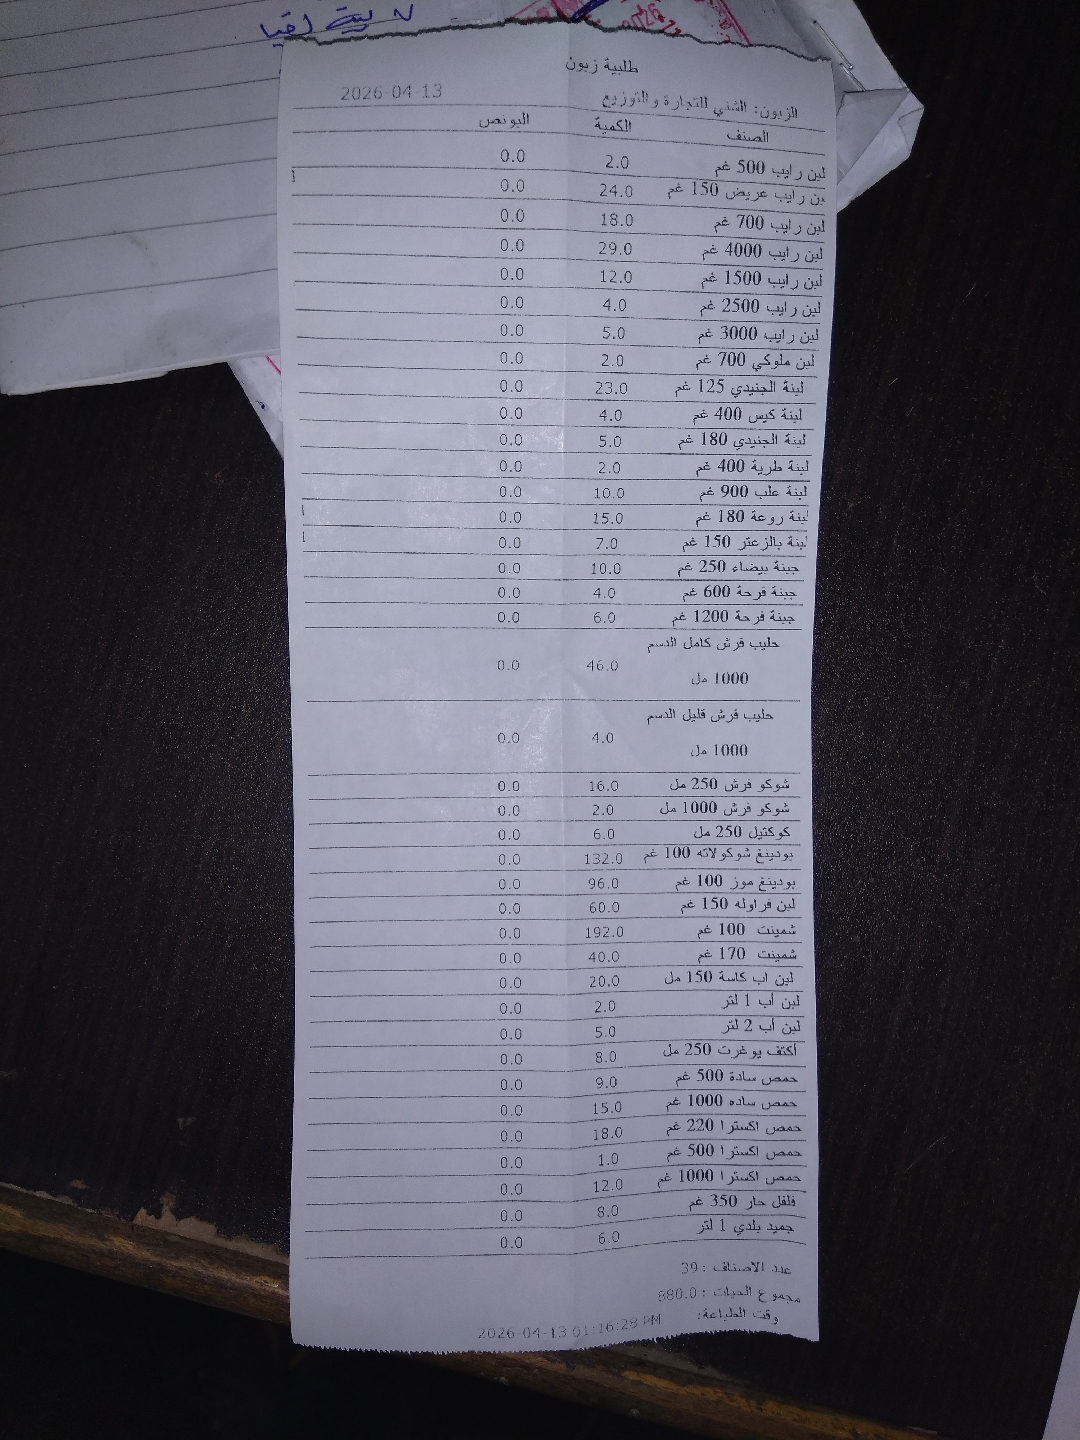 طلبية زبون
الزبون: الشني للتجارة والتوزيع 2026-04-13
الصنف الكمية البونص
لبن رايب 500 غم 2.0 0.0
بن رايب عريض 150 غم 24.0 0.0
لبن رايب 700 غم 18.0 0.0
لبن رايب 4000 غم 29.0 0.0
لبن رايب 1500 غم 12.0 0.0
لبن رايب 2500 غم 4.0 0.0
لبن رايب 3000 غم 5.0 0.0
لبن ملوكي 700 غم 2.0 0.0
لبنة الجنيدي 125 غم 23.0 0.0
لبنة كيس 400 غم 4.0 0.0
لبنة الجنيدي 180 غم 5.0 0.0
لبنة طرية 400 غم 2.0 0.0
لبنة علب 900 غم 10.0 0.0
لبنة روعة 180 غم 15.0 0.0
لبنة بالزعتر 150 غم 7.0 0.0
جبنة بيضاء 250 غم 10.0 0.0
جبنة فرحة 600 غم 4.0 0.0
جبنة فرحة 1200 غم 6.0 0.0
حليب فرش كامل الدسم
1000 مل 46.0 0.0
حليب فرش قليل الدسم
1000 مل 4.0 0.0
شوكو فرش 250 مل 16.0 0.0
شوكو فرش 1000 مل 2.0 0.0
كوكتيل 250 مل 6.0 0.0
بودينغ شوكولاته 100 غم 132.0 0.0
بودينغ موز 100 غم 96.0 0.0
لبن فراوله 150 غم 60.0 0.0
شمينت 100 غم 192.0 0.0
شمينت 170 غم 40.0 0.0
لبن اب كاسة 150 مل 20.0 0.0
لبن أب 1 لتر 2.0 0.0
لبن أب 2 لتر 5.0 0.0
أكتف يوغرت 250 مل 8.0 0.0
حمص سادة 500 غم 9.0 0.0
حمص ساده 1000 غم 15.0 0.0
حمص اكسترا 220 غم 18.0 0.0
حمص اكسترا 500 غم 1.0 0.0
حمص اكسترا 1000 غم 12.0 0.0
فلفل حار 350 غم 8.0 0.0
جميد بلدي 1 لتر 6.0 0.0
عدد الاصناف : 39
مجموع الحبات : 880.0
وقت الطباعة:
2026-04-13 01:16:28 PM